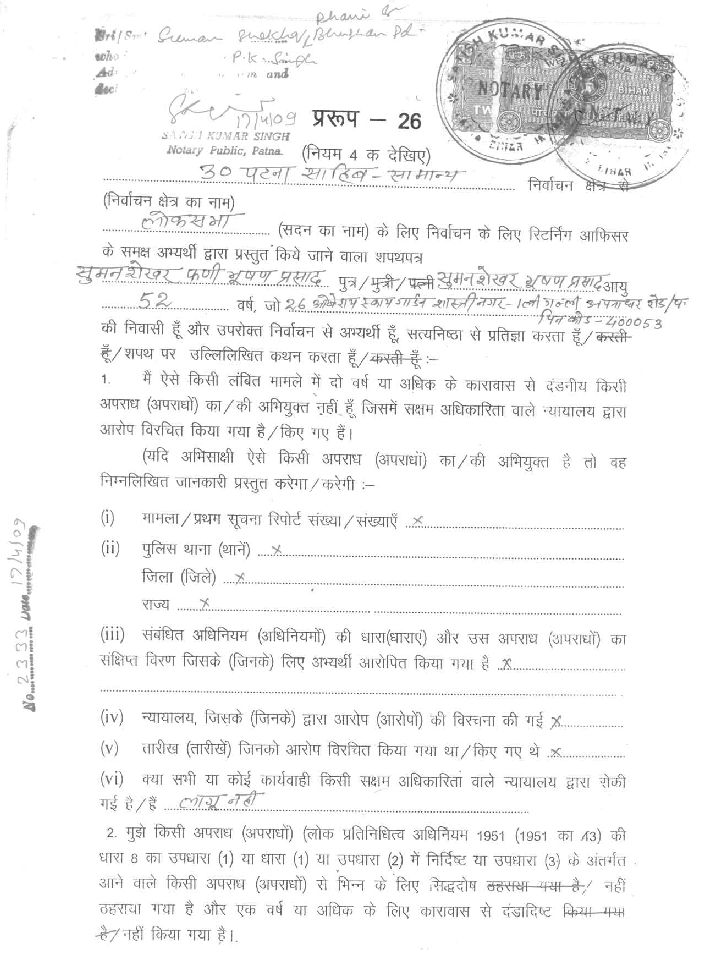 Phani Br
Sri/Smt Suman Shekhar/Bhushan Pd.
who P.K. Singh
and
17/4/09 प्ररूप – 26
SANJI KUMAR SINGH
Notary Public, Patna. (नियम 4 क देखिए)
NOTARY
NOTARY
30 पटना साहिब - सामान्य निर्वाचन क्षेत्र से
(निर्वाचन क्षेत्र का नाम)
लोकसभा (सदन का नाम) के लिए निर्वाचन के लिए रिटर्निंग आफिसर
के समक्ष अभ्यर्थी द्वारा प्रस्तुत किये जाने वाला शपथपत्र
सुमन शेखर फणी भूषण प्रसाद पुत्र/पुत्री/पत्नी सुमन शेखर भूषण प्रसाद आयु
52 वर्ष, जो 26 शास्त्रीनगर
पिन कोड - 400053
की निवासी हूँ और उपरोक्त निर्वाचन से अभ्यर्थी हूँ, सत्यनिष्ठा से प्रतिज्ञा करता हूँ/करती
हूँ/शपथ पर उल्लिलिखित कथन करता हूँ/करती हूँ :–
1. मैं ऐसे किसी लंबित मामले में दो वर्ष या अधिक के कारावास से दंडनीय किसी
अपराध (अपराधों) का/की अभियुक्त नहीं हूँ जिसमें सक्षम अधिकारिता वाले न्यायालय द्वारा
आरोप विरचित किया गया है/किए गए हैं।
(यदि अभिसाक्षी ऐसे किसी अपराध (अपराधों) का/की अभियुक्त है तो वह
निम्नलिखित जानकारी प्रस्तुत करेगा/करेगी :–
(i) मामला/प्रथम सूचना रिपोर्ट संख्या/संख्याएँ x
(ii) पुलिस थाना (थानें) x
जिला (जिले) x
राज्य x
(iii) संबंधित अधिनियम (अधिनियमों) की धारा(धाराएं) और उस अपराध (अपराधों) का
संक्षिप्त विरण जिसके (जिनके) लिए अभ्यर्थी आरोपित किया गया है x
(iv) न्यायालय, जिसके (जिनके) द्वारा आरोप (आरोपों) की विरचना की गई x
(v) तारीख (तारीखें) जिनको आरोप विरचित किया गया था/किए गए थे x
(vi) क्या सभी या कोई कार्यवाही किसी सक्षम अधिकारिता वाले न्यायालय द्वारा रोकी
गई है/हैं लागू नहीं
2. मुझे किसी अपराध (अपराधों) (लोक प्रतिनिधित्व अधिनियम 1951 (1951 का 43) की
धारा 8 का उपधारा (1) या धारा (1) या उपधारा (2) में निर्दिष्ट या उपधारा (3) के अंतर्गत
आने वाले किसी अपराध (अपराधों) से भिन्न के लिए सिद्धदोष ठहराया गया है/ नहीं
ठहराया गया है और एक वर्ष या अधिक के लिए कारावास से दंडादिष्ट किया गया
है/नहीं किया गया है।.
No. 2333 Date 17/4/09